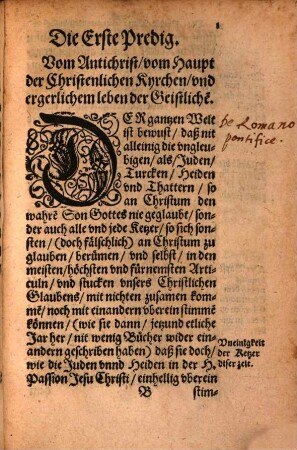 Die Erste Predig.
Vom Antichrist/vom Haupt
der Christenlichen Kyrchen/vnd
ergerlichem leben der Geistlichē.
DER gantzen Welt
ist bewust/ daß nit
alleinig die vngleu-
bigen/als/Juden/
Turcken/ Heiden
vnd Thattern/ so
an Christum den
wahrē Son Gottes nie geglaubt/son-
der auch alle vnd jede Ketzer/ so sich son-
sten/ (doch fälschlich) an Christum zu
glauben/ berümen/ vnd selbst/ in den
meisten/höchsten vnd fürnemsten Arti-
culn/ vnd stucken vnsers Christlichen
Glaubens/ mit nichten zusamen kom-
mē/ noch mit einandern vberein stimmē
können/ (wie sie dann/ jetzund etliche
Jar her/ nie wenig Bücher wider ein-
andern geschriben haben) daß sie doch/
wie die Juden vnnd Heiden in der H.
Passion Jesu Christi/ einhellig vberein
B stim-
de Romano
pontifice.
Vneinigkeit
der Ketzer
diser zeit.